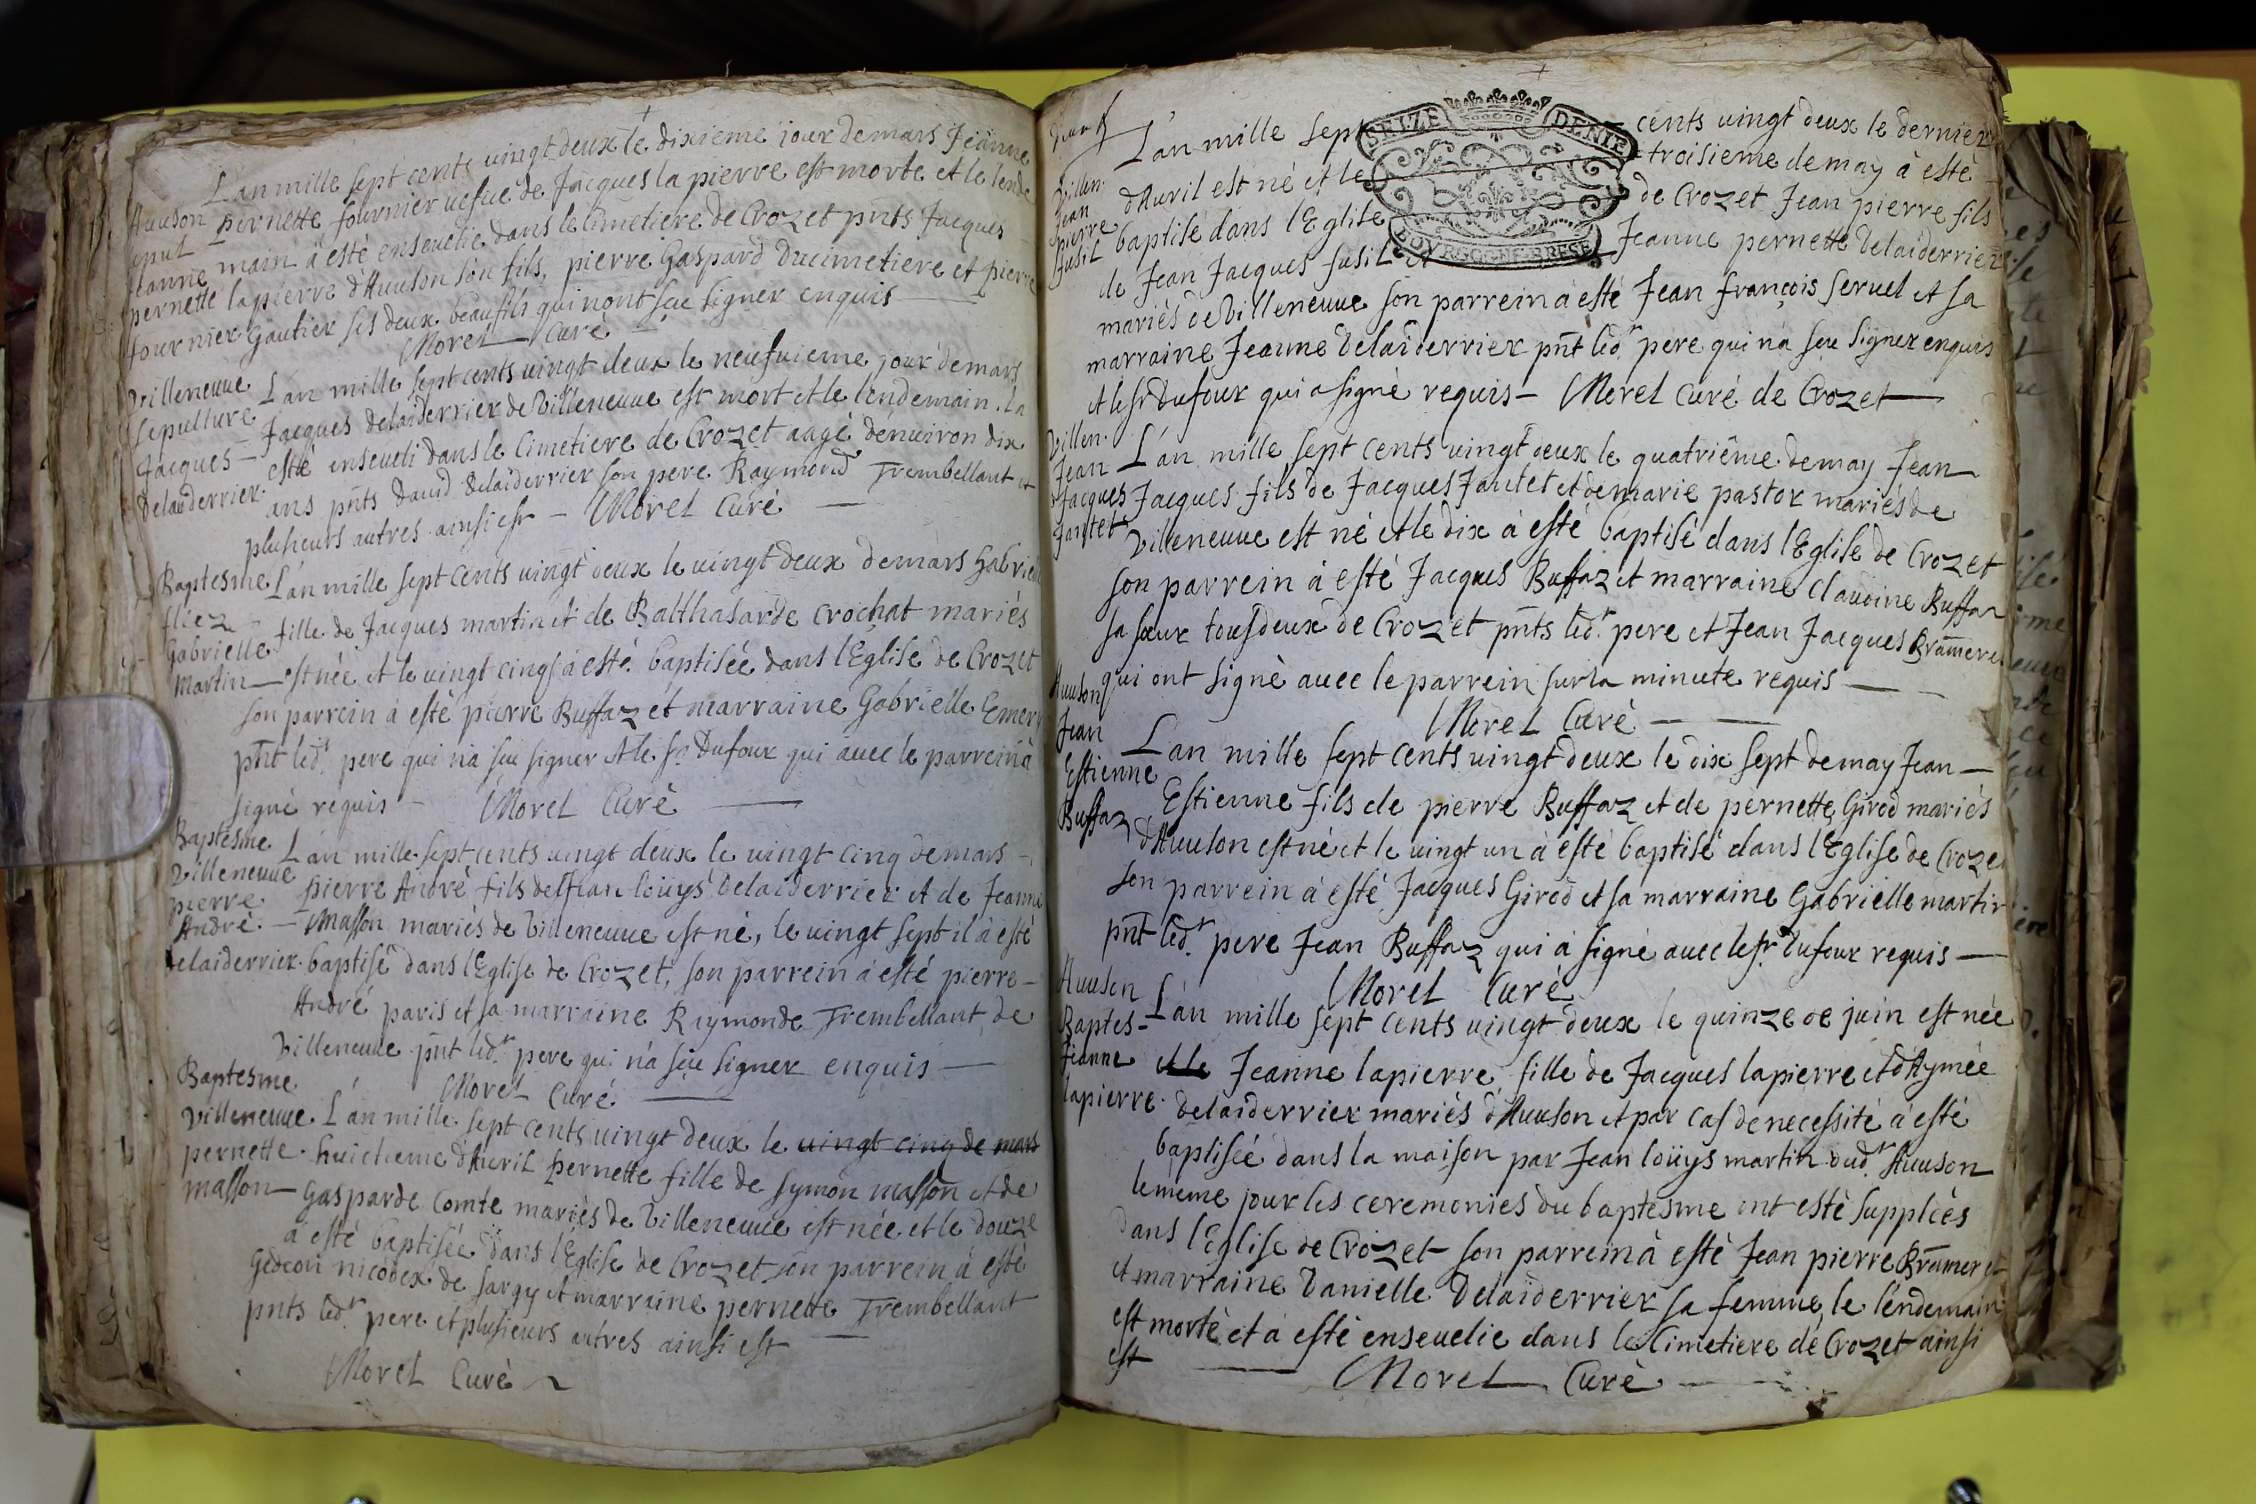 L'an mille sept cents vingt deux le dixieme jour de mars Jeanne
Auuson pernette fournier uefue de Jacques la pierre est morte et le lende
main à esté enseuelie dans le Cimetiere de Crozet pnts Jacques
Jeanne
pernette lapierre d'Auuson son fils, pierre Gaspard Ducimetiere et pierre
fournier Gautier ses deux beaufils qui n'ont sçu signer enquis
Morel Curé
Villeneuue L'an mille sept cents vingt deux le neufuieme jour de mars
sepulture Jacques delaiderrier de Villeneuue est mort et le lendemain. la
Jacques - esté enseueli dans le Cimetiere de Crozet aagé d'enuiron dix
Delaiderrier. ans pnts Dauid delaiderrier son pere Raymond Trembellant et
plusieurs autres ainsi est - Morel Curé
Baptesme L'an mille sept cents vingt deux le uingt deux de mars Gabrielle
fliez fille de Jacques martin et de Balthasarde Crochat mariés
Gabrielle
Martin est née et le vingt cinq à esté baptisée dans l'Eglise de Crozet
son parrein à esté pierre Buffaz et marraine Gabrielle Emery
pnt led.t pere qui n'a sçu signer et le sr. Dufour qui auec le parrein à
signé requis - Morel Curé
Baptesme L'an mille sept cents uingt deux le uingt cinq de mars -
Villeneuue pierre André fils de Jean loüys Delaiderrier et de Jeanne
pierre
André. - Masson mariés de Villeneuue est né, le uingt sept il à esté
delaiderrier. baptisé dans l'Eglise de Crozet, son parrein à esté pierre -
André paris et sa marraine Raymonde Trembellant de
Villeneuue pnt led.t pere qui n'a sçu signer enquis
Baptesme Morel Curé.
Villeneuue. L'an mille sept cents vingt deux le uingt cinq de mars
pernette. huictieme d'Auril pernette fille de symon masson et de
masson - Gasparde Comte mariés de Villeneuue est née et le douze
à esté baptisée dans l'Eglise de Crozet son parrein à esté
Gedeon nicodex de sargy et marraine pernette Trembellant
pnts led.t pere et plusieurs autres ainsi est
Morel Curé
L'an mille sept cents vingt deux le dernier
Villen. d'Auril est né et le troisieme de may à esté
Jean
pierre baptisé dans l'Eglise de Crozet Jean pierre fils
fusil de Jean Jacques fusil et Jeanne pernette Delaiderrier
SEIZE DENIE
BOVRGOGNE BRESE
mariés de Villeneuue son parrein à esté Jean françois seruel et sa
marraine Jeanne Delaiderrier pnt led.t pere qui n'a sçu signer enquis
et le sr Dufour qui a signé requis - Morel Curé de Crozet
Villen. L'an mille sept cents vingt deux le quatriême de may Jean
Jean
Jacques Jacques fils de Jacques Jantet et de marie pastor mariés de
Jantet Villeneuue est né et le dix à esté baptisé dans l'Eglise de Crozet
son parrein à esté Jacques Buffaz et marraine Claudine Buffaz
sa sœur tous deux de Crozet pnts led.t pere et Jean Jacques Bramerel
qui ont signé auec le parrein sur la minute requis
Auuson Morel Curé
Jean L'an mille sept cents vingt deux le dix sept de may Jean -
Estienne Estienne fils de pierre Buffaz et de pernette Girod mariés
Buffaz d'Auuson est né et le vingt un à esté baptisé dans l'Eglise de Crozet
son parrein à esté Jacques Girod et sa marraine Gabrielle martin
pnt led.t pere Jean Buffaz qui à signé auec le sr. Dufour requis
Auuson Morel Curé
Baptes- L'an mille sept cents vingt deux le quinze de juin est née
Jeanne et le Jeanne lapierre fille de Jacques lapierre et d'Aymée
lapierre. delaiderrier mariés d'Auuson et par cas de necessité à esté
baptisée dans la maison par Jean loüys martin dud.t Auuson
le meme jour les ceremonies du baptesme ont esté suppléés
dans l'Eglise de Crozet son parrein à esté Jean pierre Bramerel
et marraine Danielle Delaiderrier sa femme, le lendemain
est morte et à esté enseuelie dans le Cimetiere de Crozet ainsi
est Morel Curé